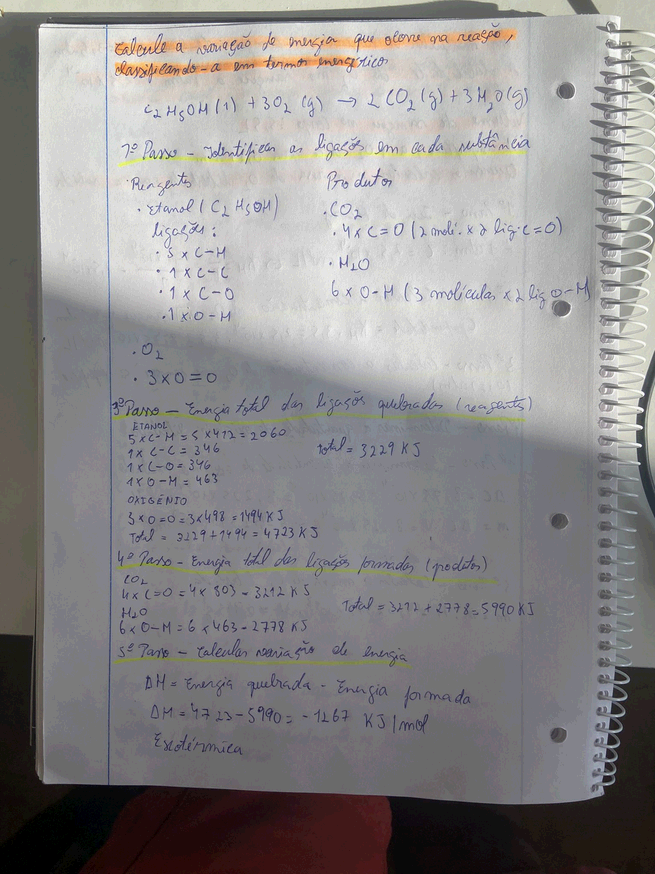 Calcule a variação de energia que ocorre na reação,
classificando-a em termos energéticos
C2H5OH(l) + 3O2(g) → 2CO2(g) + 3H2O(g)
1º Passo - Identificar as ligações em cada substância
Reagentes
• Etanol (C2H5OH)
ligações:
• 5 x C-H
• 1 x C-C
• 1 x C-O
• 1 x O-H
• O2
• 3 x O=O
Produtos
• CO2
• 4 x C=O (2 molé. x 2 lig. C=O)
• H2O
6 x O-H (3 moléculas x 2 lig O-H)
3º Passo - Energia total das ligações quebradas (reagentes)
ETANOL
5 x C-H = 5 x 412 = 2060
1 x C-C = 346
1 x C-O = 346
1 x O-H = 463
Total = 3229 KJ
OXIGÊNIO
3 x O=O = 3 x 498 = 1494 KJ
Total = 3229 + 1494 = 4723 KJ
4º Passo - Energia total das ligações formadas (produtos)
CO2
4 x C=O = 4 x 803 = 3212 KJ
H2O
6 x O-H = 6 x 463 = 2778 KJ
Total = 3212 + 2778 = 5990 KJ
5º Passo - Calcular variação de energia
ΔH = Energia quebrada - Energia formada
ΔH = 4723 - 5990 = -1267 KJ/mol
Exotérmica